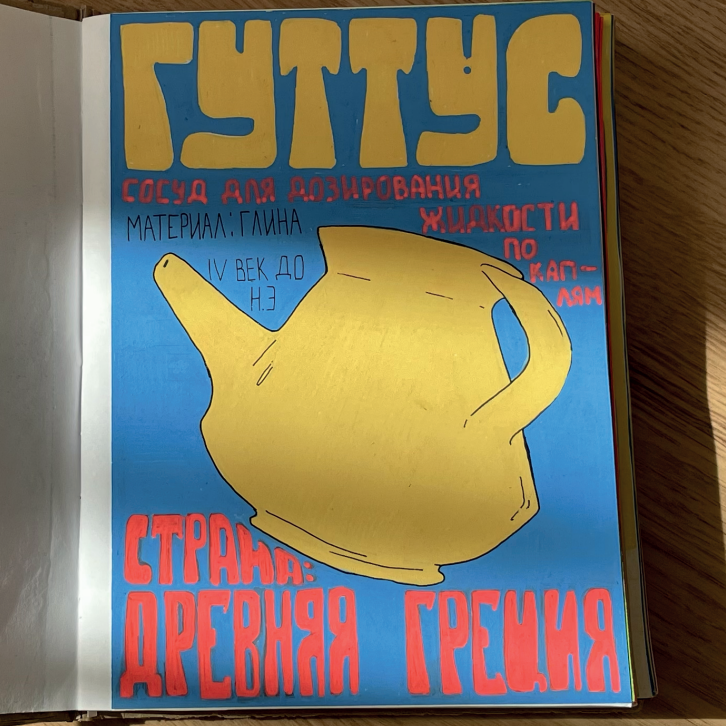 ГУТТУС
СОСУД ДЛЯ ДОЗИРОВАНИЯ
ЖИДКОСТИ
ПО
КАП-
ЛЯМ
МАТЕРИАЛ: ГЛИНА
IV ВЕК ДО
Н.Э
СТРАНА:
ДРЕВНЯЯ ГРЕЦИЯ